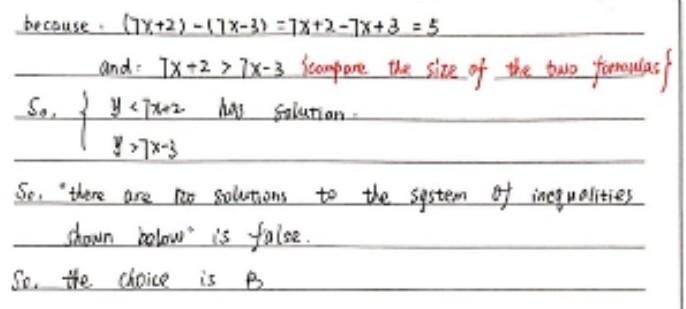 because . (7x+2) - (7x-3) = 7x+2-7x+3 = 5
and: 7x+2 > 7x-3 {compare the size of the two formulas}
So, { y < 7x+2 has solution.
y > 7x-3
So, "there are no solutions to the system of inequalities
shown below" is false.
So. the choice is B